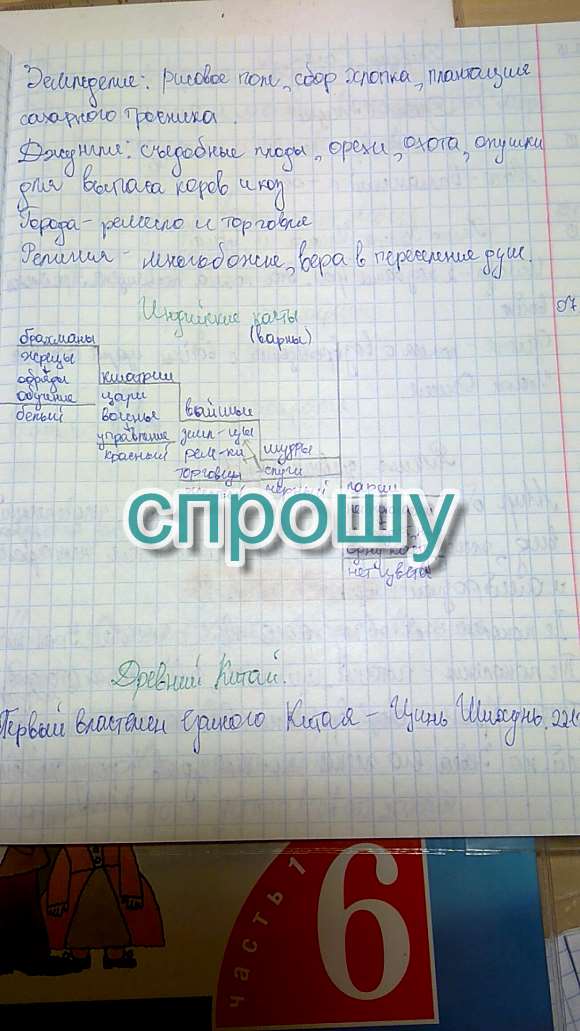 Земледелие: рисовое поле, сбор хлопка, плантации
сахарного тростника.
Джунгли: съедобные плоды, орехи, охота, опушки
для выпаса коров и коз
Города - ремесло и торговля
Религия - многобожие, вера в переселение душ.
Индийские касты
(варны)
брахманы
жрецы
обряды
обучение
белый
кшатрии
цари
военные
управление
красный
вайшьи
земл-цы
рем-ки
торговцы
шудры
слуги
черный
парии
нет цвета
спрошу
Древний Китай.
Первый властелин единого Китая - Цинь Шихуань. 221
часть 1
6